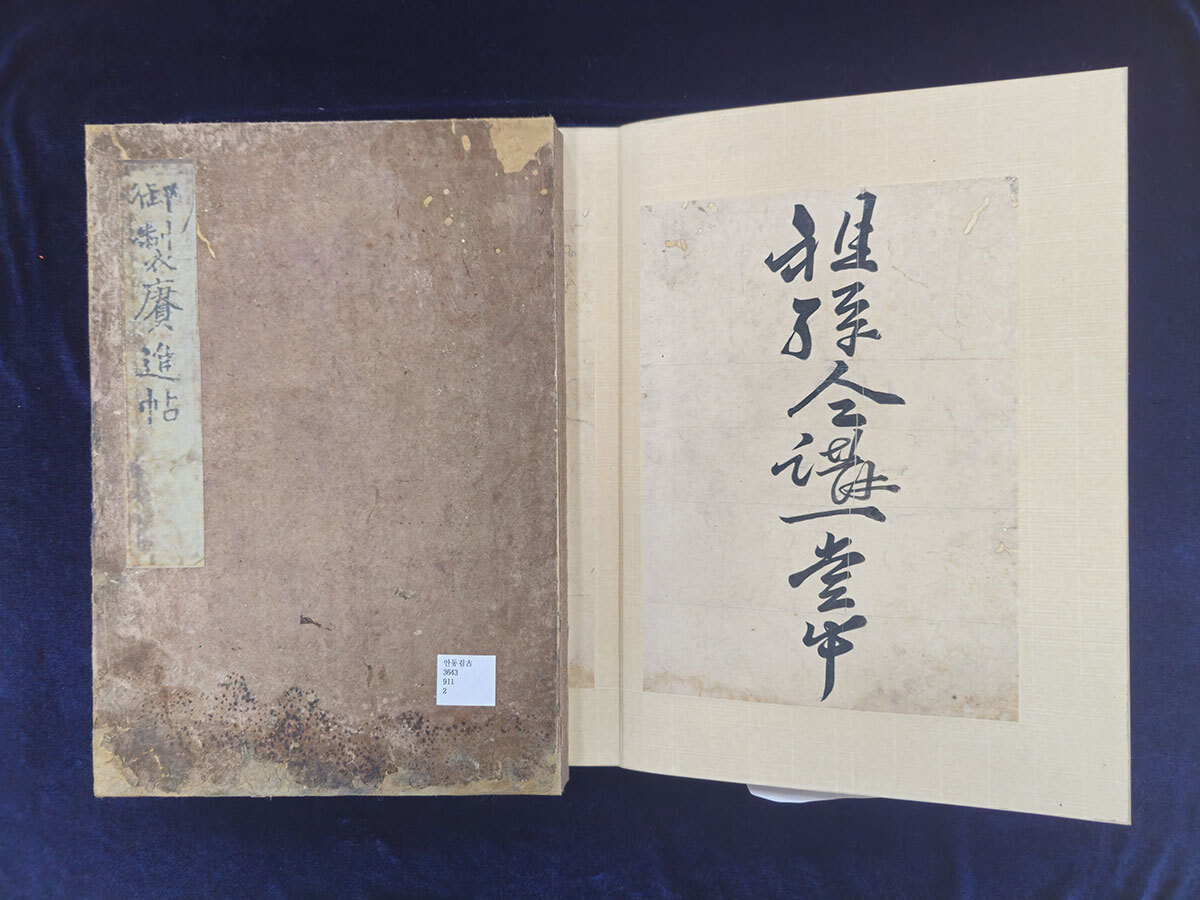 御製賡進帖
안동김古
3643
911
2
稚孫講一堂中